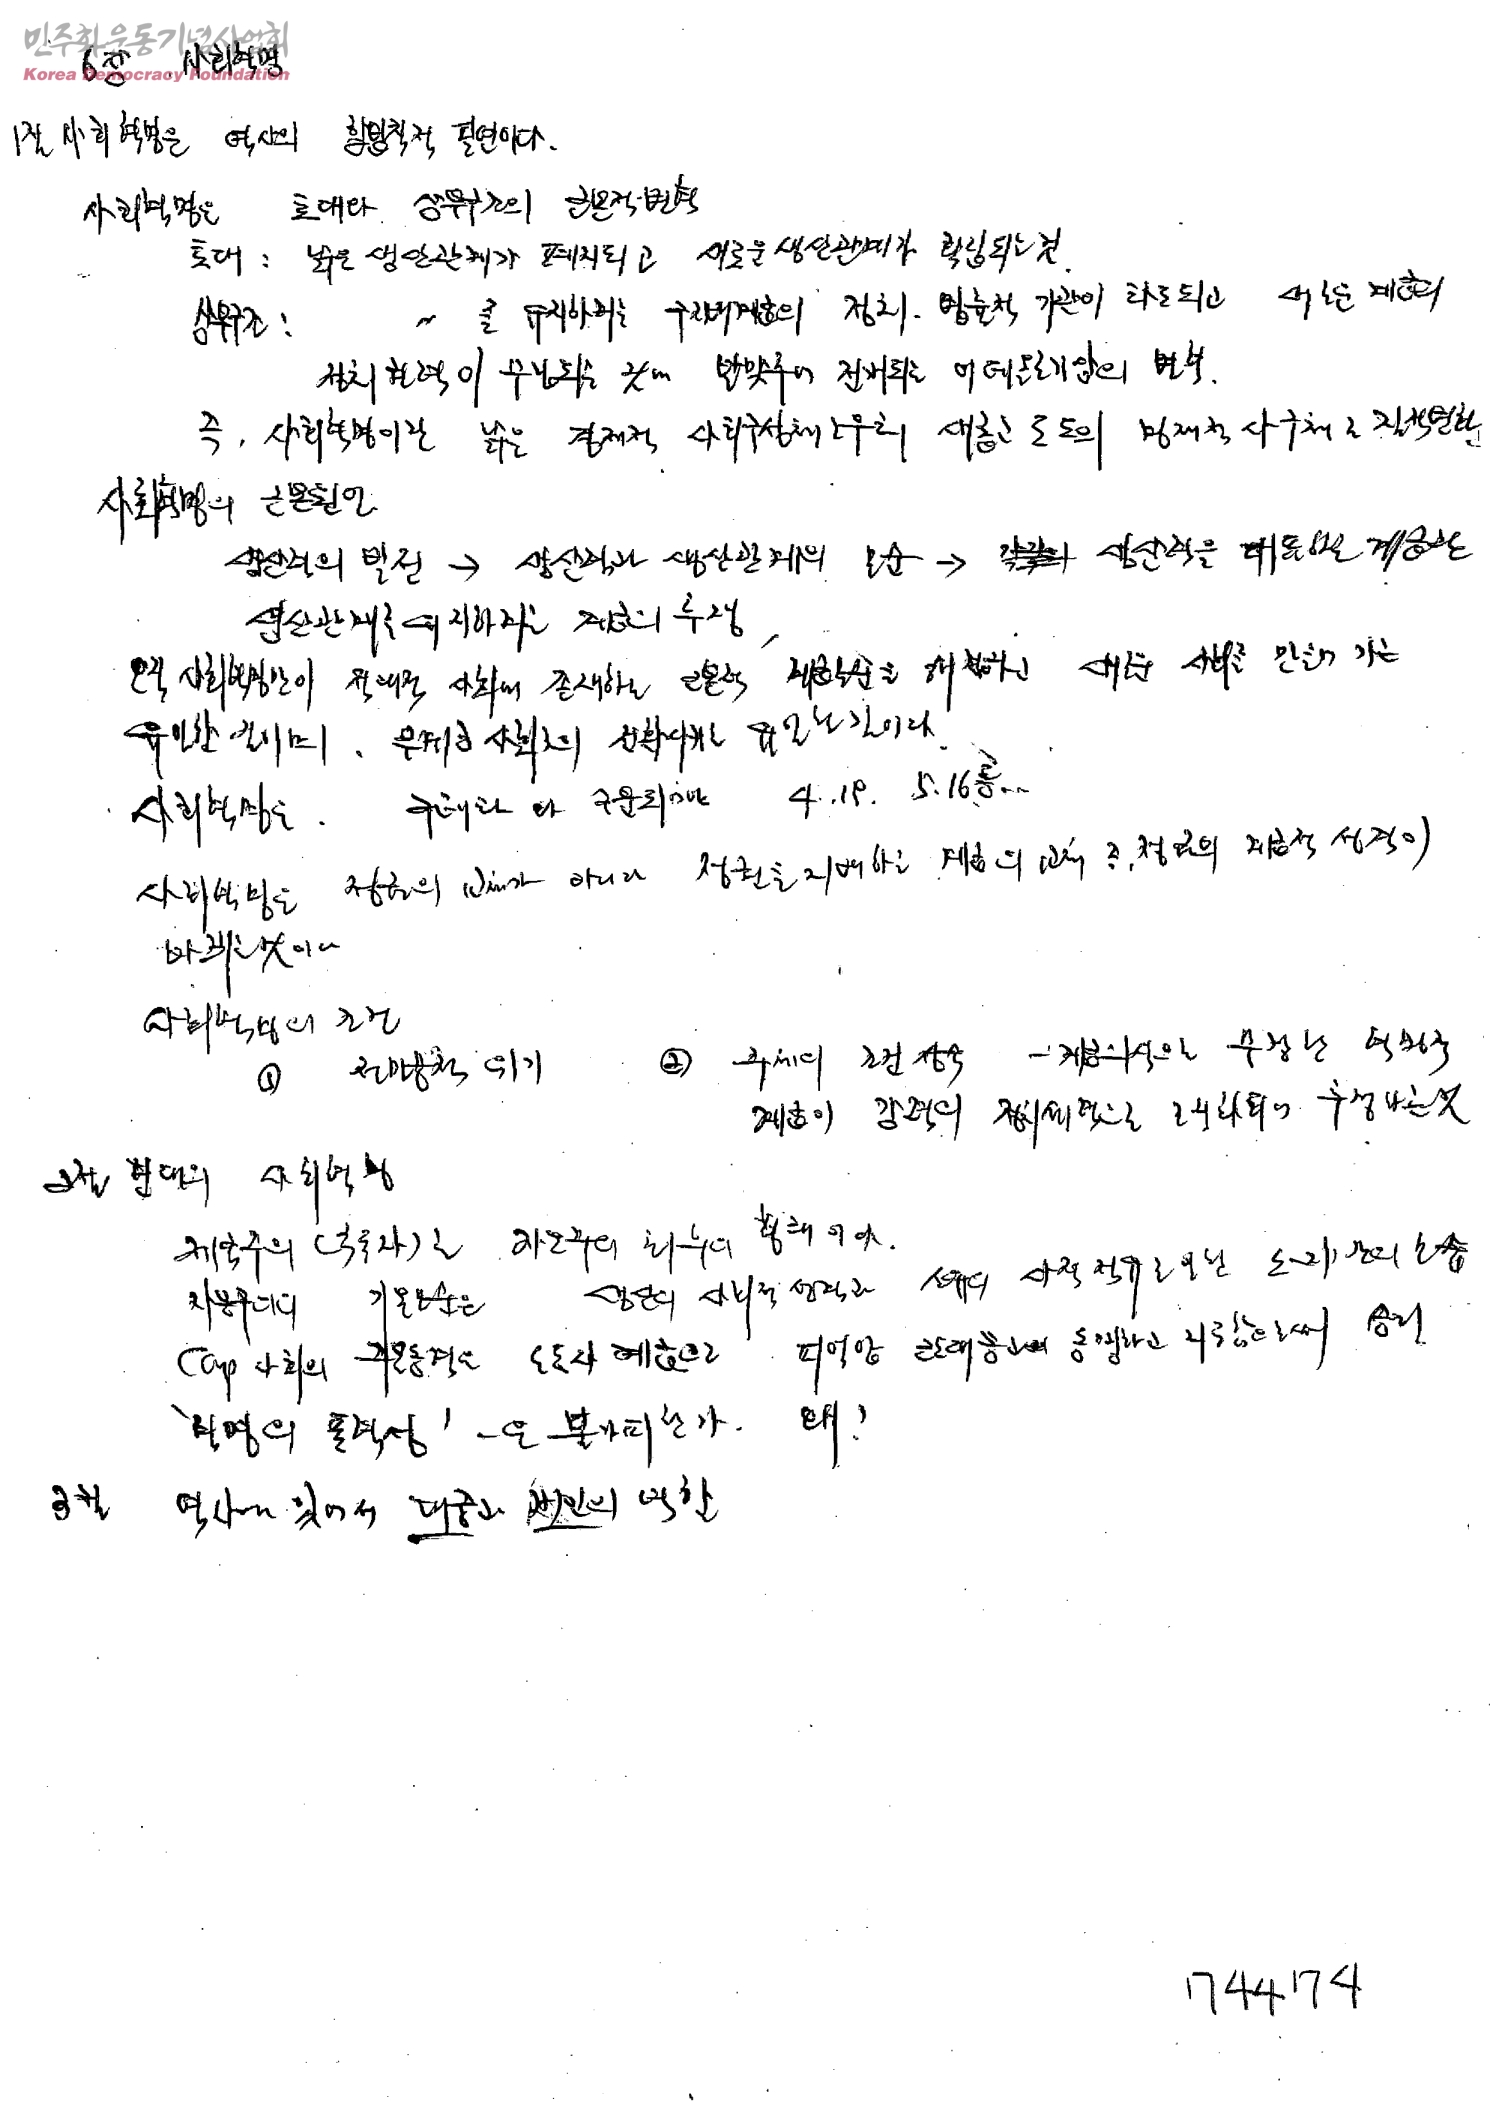 민주화운동기념사업회
Korea Democracy Foundation
6장 사회혁명
1절 사회혁명은 역사의 합법칙적 필연이다.
사회혁명은 토대와 상부구조의 근본적 변혁
토대 : 낡은 생산관계가 폐지되고 새로운 생산관계가 확립되는 것
상부구조 : ~ 를 유지하려는 구지배계급의 정치. 법률적 기관이 타도되고 새로운 계급의
정치권력이 수립되는 것에 발맞추어 전개되는 이데올로기상의 변혁.
즉, 사회혁명이란 낡은 경제적 사회구성체
사회혁명의 근본원인
생산력의 발전 → 생산력과 생산관계의 모순 → 생산력을 대표하는 계급과
생산관계를 유지하려는 계급의 투쟁
오직 사회혁명만이 적대적 사회에 존재하는 근본적 계급모순을 해결하고 새로운 사회를 만들어 가는
유일한 길이며, 무계급 사회로의 유일한 길이다.
사회혁명은 . 쿠데타 나 4.19. 5.16 등...
사회혁명은 정권의 교체가 아니라 정권을 지배하는 계급의 교체 즉, 정권의 계급적 성격이
바뀌는 것이다
사회혁명의 조건
① 전만용적 위기 ② 주체의 조건 성숙 - 계급의식으로 무장한 혁명적
계급이 강력한 정치세력으로 조직화되어 투쟁하는 것
2절 현대의 사회혁명
제국주의 (독점자)는 자본주의 최후의 형태이다.
자본주의의 기본모순은 생산의 사회적 성격과 소유의 사적
Cap 사회의 근본동력은 노동자 계급으로 피억압 근로대중과 동맹하고 지도함으로써 승리
'혁명의 폭력성' - 은 불가피한가. 왜?
3절 역사에 있어서 대중과 개인의 역할
174474